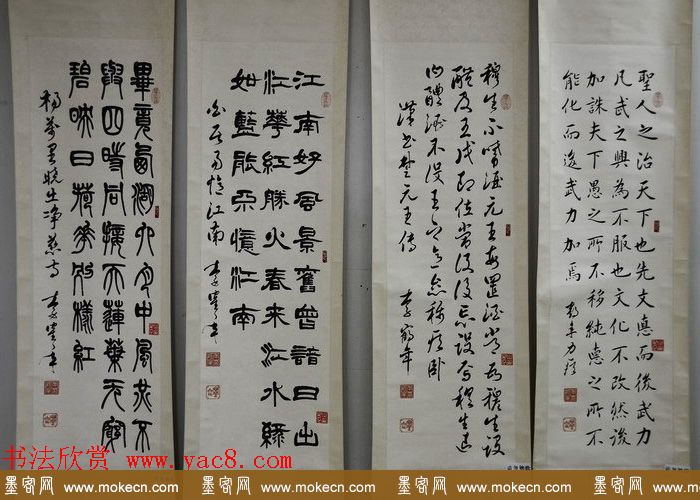 聖人之治天下也先文德而後武力
凡武之興為不服也文化不改然後
加誅夫下愚之所不移純德之所不
能化而後武力加焉
穆生不嗜酒元王每置酒常為穆生設
醴及王戊即位常設後忘設焉穆生退
曰醴酒不設王之意怠稱疾卧
漢書楚元王傳 李鶴年
江南好風景舊曾諳日出
江華紅勝火春來江水綠
如藍能不憶江南
白居易憶江南 李鶴年
畢竟西湖六月中風光不
與四時同接天蓮葉无窮
碧映日荷華別樣紅
楊萬里曉出淨慈寺 李鶴年
书法欣赏 www.yac8.com
墨客网 www.mokecn.com 墨客网 www.mokecn.com 墨客网 www.mokecn.com 墨客网 www.mokecn.com